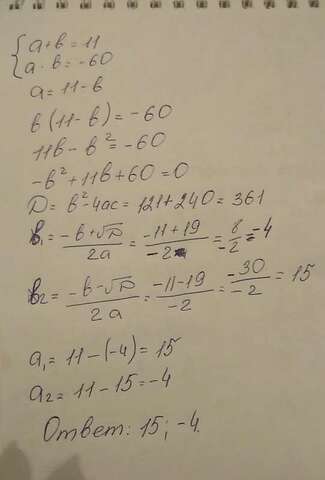 { a+в = 11
a · в = -60
a = 11 - в
в (11 - в) = -60
11в - в² = -60
-в² + 11в + 60 = 0
D = в² - 4ac = 121 + 240 = 361
в₁ = (-в + √D)/2a = (-11 + 19)/-2 = 8/-2 = -4
в₂ = (-в - √D)/2a = (-11 - 19)/-2 = -30/-2 = 15
a₁ = 11 - (-4) = 15
a₂ = 11 - 15 = -4
Ответ: 15; -4.